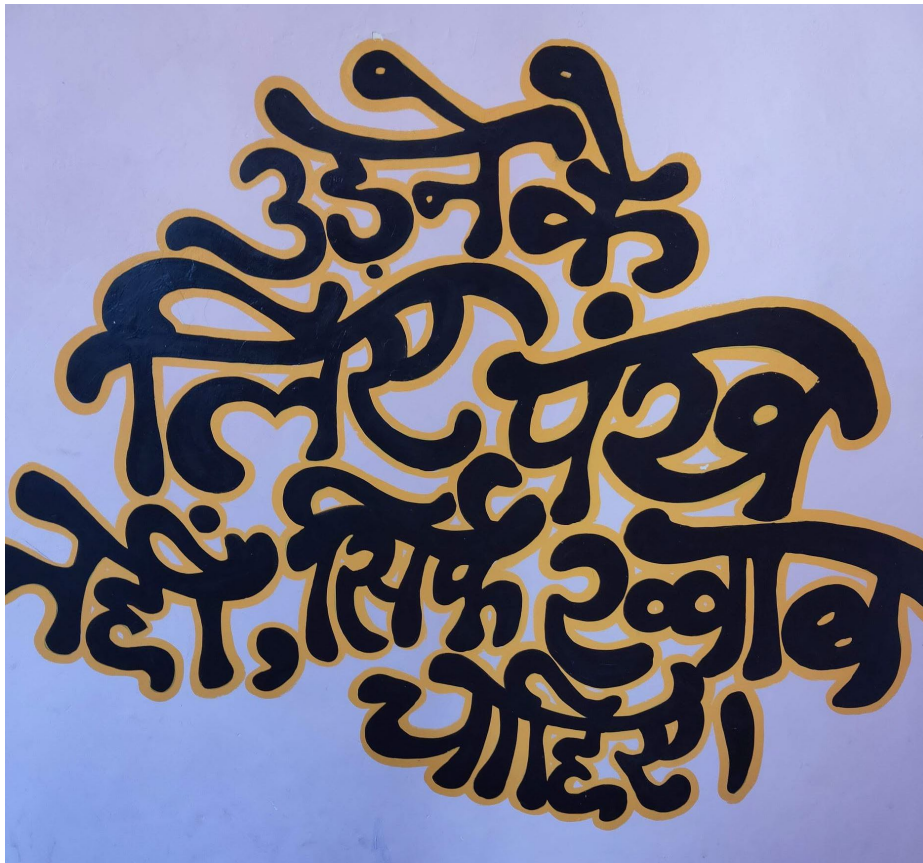 उड़ने के
लिए पंख
नहीं, सिर्फ ख्वाब
चाहिए।